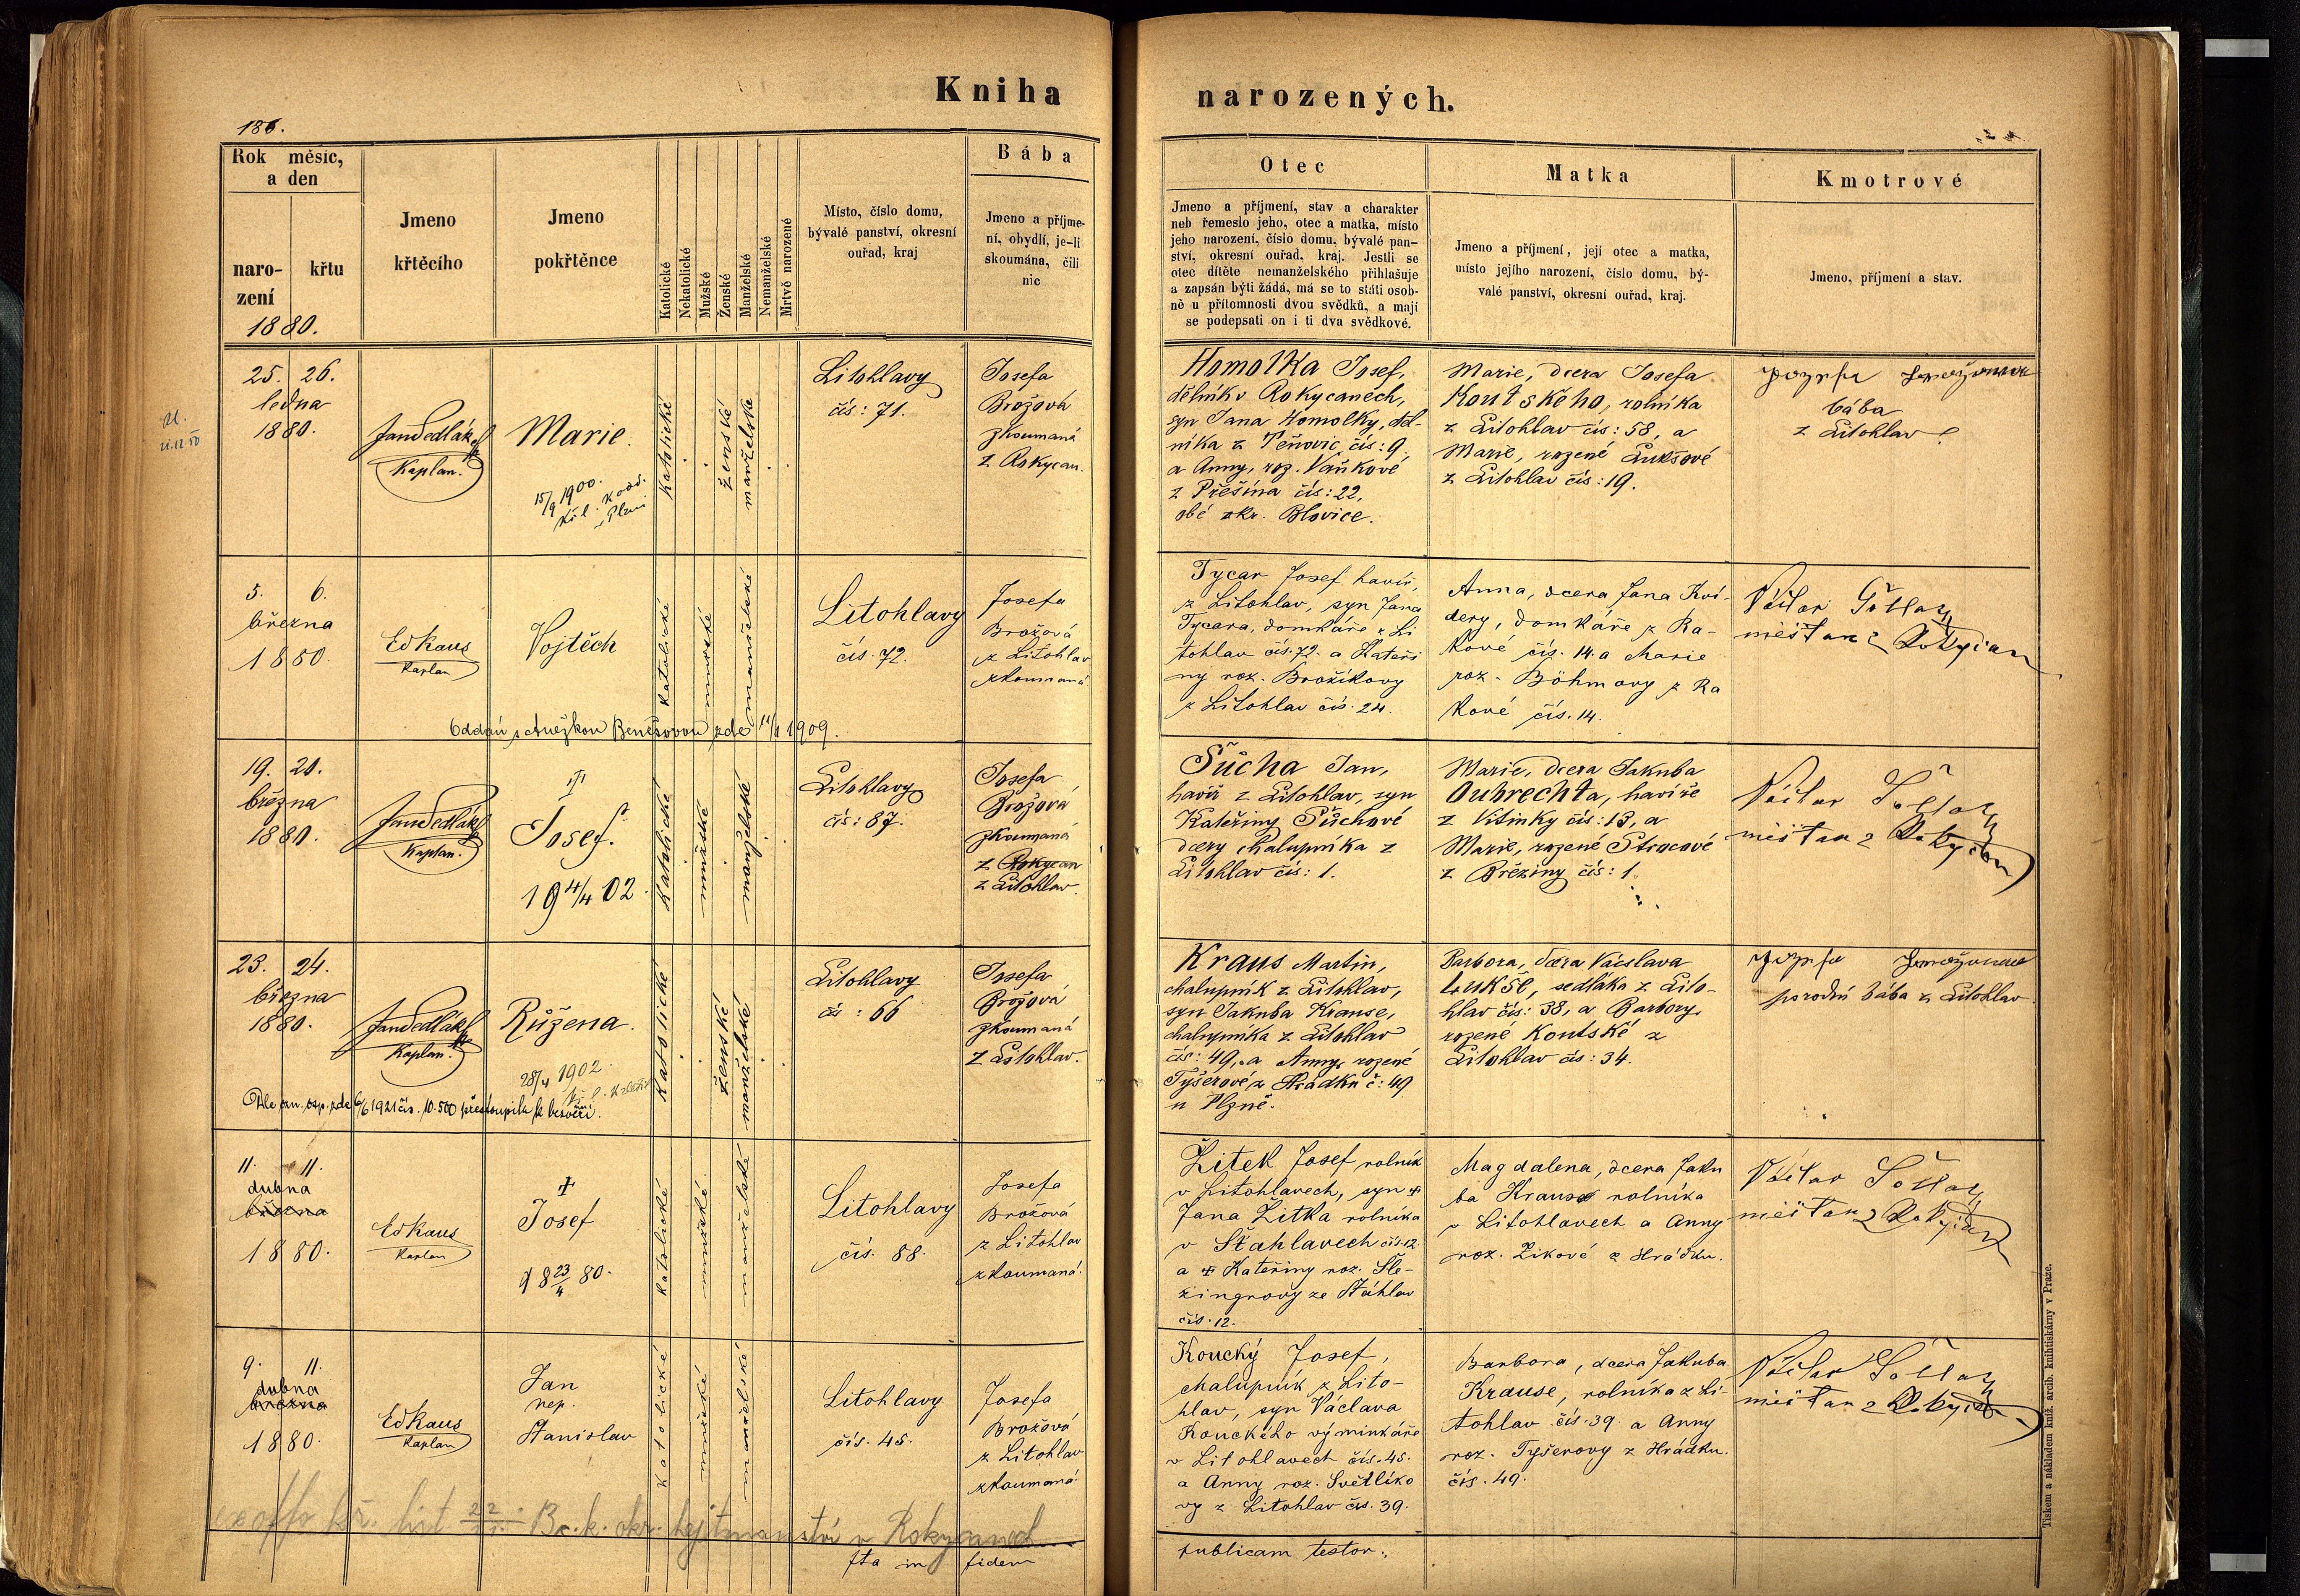 Kniha narozených.
186.
Rok měsíc,
a den
naro-
zení
křtu
1880.
Jmeno
křtěcího
Jmeno
pokřtěnce
Katolické
Nekatolické
Mužské
Ženské
Manželské
Nemanželské
Mrtvě narozené
Místo, číslo domu,
bývalé panství, okresní
ouřad, kraj
Bába
Jmeno a příjme-
ní, obydlí, je-li
skoumána, čili
nic
Otec
Jmeno a příjmení, stav a charakter
neb řemeslo jeho, otec a matka, místo
jeho narození, číslo domu, bývalé pan-
ství, okresní ouřad, kraj. Jestli se
otec dítěte nemanželského přihlašuje
a zapsán býti žádá, má se to státi osob-
ně u přítomnosti dvou svědků, a mají
se podepsati on i ti dva svědkové.
Matka
Jmeno a příjmení, její otec a matka,
místo jejího narození, číslo domu, bý-
valé panství, okresní ouřad, kraj.
Kmotrové
Jmeno, příjmení a stav.
25. 26.
ledna
1880.
Jan Sedlák
Kaplan.
Marie.
15/9 1900.
katolické
ženské
manželské
Litohlavy
čís: 71.
Josefa
Brožová
zkoumaná
z Rokycan.
Homolka Josef,
dělník v Rokycanech,
syn Jana Homolky, děl-
níka z čís: 9.
a Anny, roz. Vaňkové
z Přešína čís: 22,
obé okr. Blovice.
Marie, dcera Josefa
Koutského, rolníka
z Litohlav čís: 58, a
Marie, rozené Lukšové
z Litohlav čís: 19.
bába
z Litohlav
5. 6.
března
1880.
Ed Kaus
Kaplan
Vojtěch
katolické
mužské
manželské
Litohlavy
čís. 72.
Josefa
Brožová
z Litohlav
zkoumaná
Oddán s Anežkou Benešovou zde 11/1 1909.
Tycar Josef havíř,
z Litohlav, syn Jana
Tycara, domkáře z Li
tohlav čís. 72. a Kateři
ny roz. Brožíkovy
z Litohlav čís. 24.
Anna, dcera Jana Kví-
dery, domkáře z Ra-
kové čís. 14. a Marie
roz. Böhmovy z Ra
kové čís. 14.
měšťan z Rokycan
19. 20.
března
1880.
Jan Sedlák
Kaplan.
Josef.
19 4/4 02.
katolické
mužské
manželské
Litohlavy
čís: 87.
Josefa
Brožová
zkoumaná
z Rokycan
z Litohlav.
Šůcha Jan,
havíř z Litohlav, syn
Kateřiny Šůchové
dcery chalupníka z
Litohlav čís: 1.
Marie, dcera Jakuba
Oubrechta, havíře
z Vitinky čís: 13, a
Marie, rozené Strocové
z Březiny čís: 1.
měšťan z Rokycan
23. 24.
března
1880.
Jan Sedlák
Kaplan.
Růžena.
28/4 1902.
katolické
ženské
manželské
Litohlavy
čís: 66
Josefa
Brožová
zkoumaná
z Litohlav.
Dle ozn. osp. zde 6/6 1921 čís. 10.500 přestoupila k bezvěří.
Kraus Martin,
chalupník z Litohlav,
syn Jakuba Krause,
chalupníka z Litohlav
čís: 49, a Anny, rozené
Tyšerové z Hrádku č: 49
u Plzně.
Barbora, dcera Václava
Lukše, sedláka z Lito-
hlav čís: 38, a Barbory,
rozené Koutské z
Litohlav čís: 34.
porodní bába z Litohlav
11. 11.
dubna
března
1880.
Ed Kaus
Kaplan
Josef
18 23/4 80.
katolické
mužské
manželské
Litohlavy
čís. 88.
Josefa
Brožová
z Litohlav
zkoumaná.
Žitek Josef rolník
v Litohlavech, syn
Jana Žitka rolníka
v Šťahlavech čís. 12.
a Kateřiny roz. Šle-
zingrovy ze Šťáhlav
čís. 12.
Magdalena, dcera Jaku
ba Krause rolníka
v Litohlavech a Anny
roz. Zikové z Hrádku.
měšťan z Rokycan
9. 11.
dubna
března
1880.
Ed Kaus
Kaplan
Jan
nep.
Stanislav
katolické
mužské
manželské
Litohlavy
čís. 45.
Josefa
Brožová
z Litohlav
zkoumaná.
Koucký Josef,
chalupník z Lito-
hlav, syn Václava
Kouckého výminkáře
v Litohlavech čís. 45.
a Anny roz. Světlíko
vy z Litohlav čís. 39.
Barbora, dcera Jakuba
Krause, rolníka z Li-
tohlav čís. 39. a Anny
roz. Tyšerovy z Hrádku.
čís. 49.
měšťan z Rokycan
ex offo kř. list c. k. okr. hejtmanství v Rokycanech
Ita in fidem
publicam testor.
Tiskem a nákladem kníž. arcib. knihtiskárny v Praze.